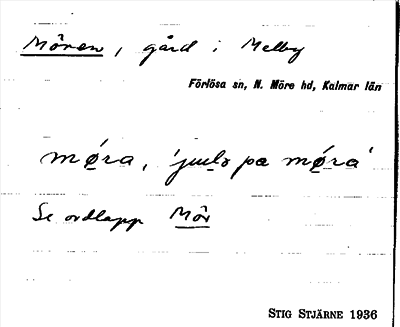 Mören, gård i Melby
Förlösa sn, N. Möre hd, Kalmar län
mǿra, 'juls pa mǿra'
Se ordlapp Mör
STIG STJÄRNE 1936